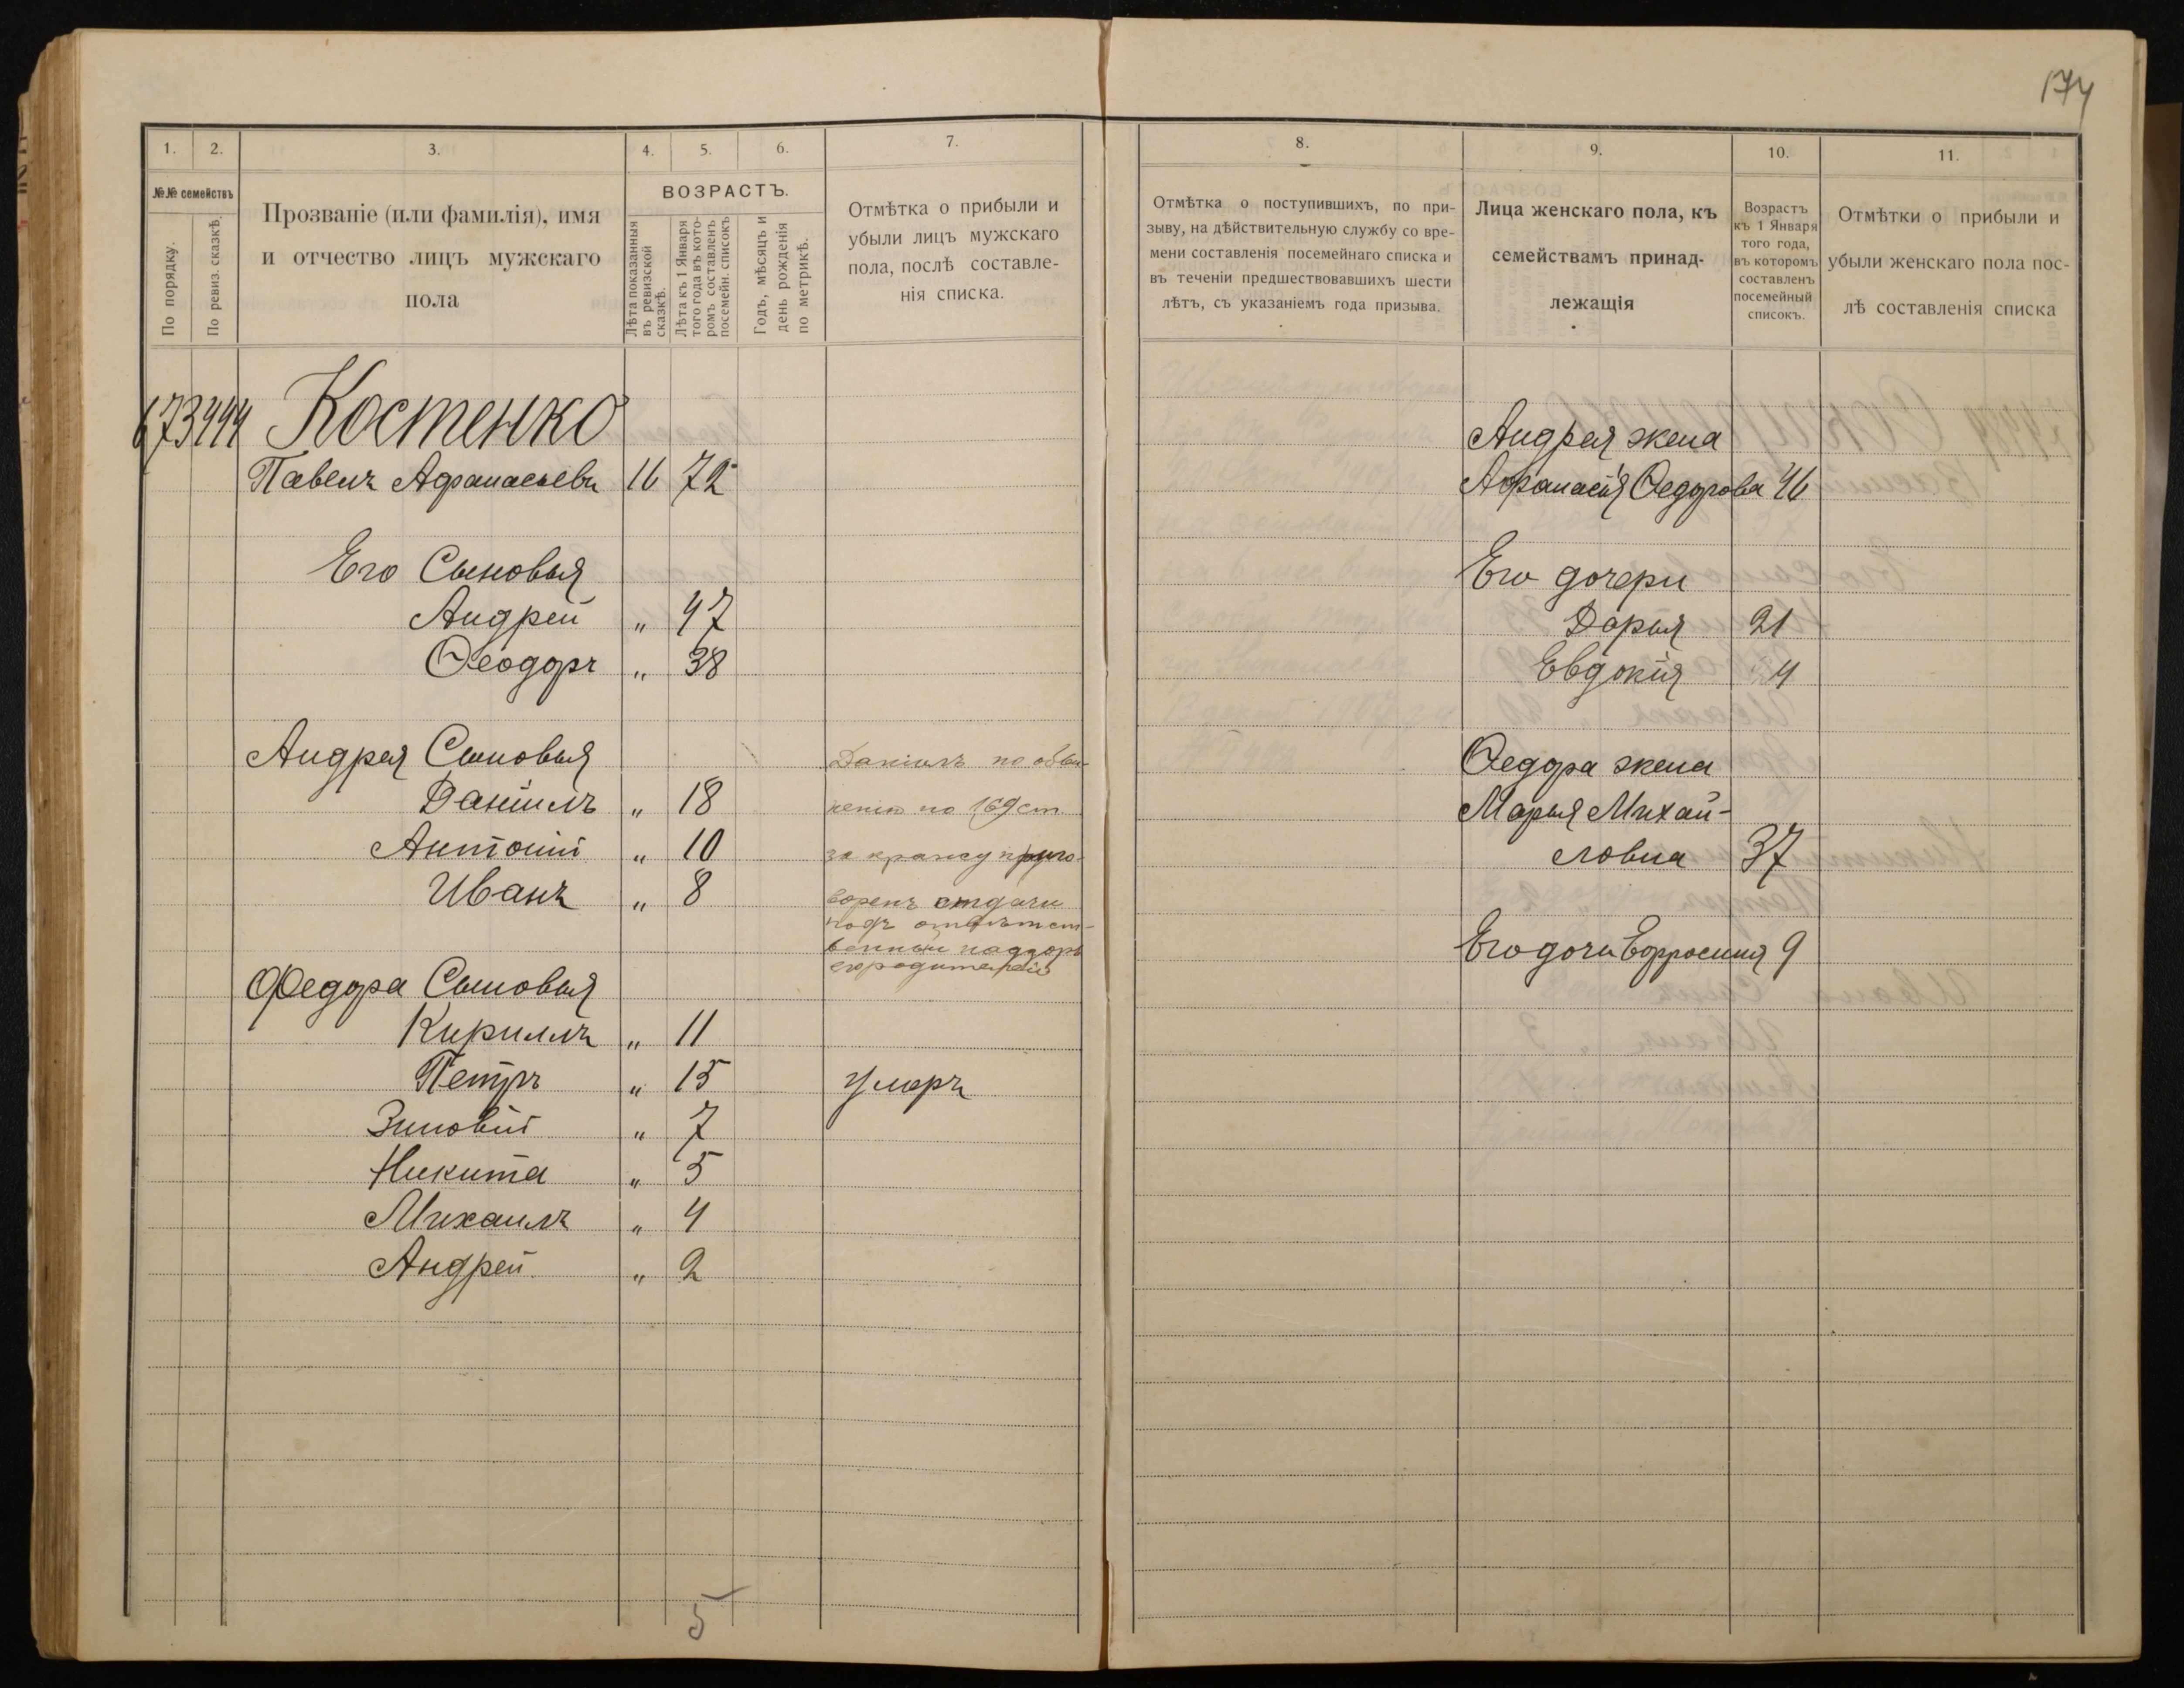 174
1. 2. 3. 4. 5. 6. 7.
№№ семействъ
По порядку.
По ревиз. сказкѣ.
Прозваніе (или фамилія), имя
и отчество лицъ мужскаго
пола
ВОЗРАСТЪ.
Лѣта показанныя
въ ревизской
сказкѣ.
Лѣта къ 1 Января
того года въ кото-
ромъ составленъ
посемейн. списокъ
Годъ, мѣсяцъ и
день рожденія
по метрикѣ.
Отмѣтка о прибыли и
убыли лицъ мужскаго
пола, послѣ составле-
нія списка.
673 444 Костенко
Павелъ Афанасьевъ 16 72
Его Сыновья
Андрей „ 47
Ѳеодоръ „ 38
Андрея Сыновья
Даніилъ „ 18
Антоній „ 10
Иванъ „ 8
Даніилъ по обви-
ненію по 169 ст
за кражу приго-
воренъ отдачи
подъ отвѣтст-
венный надзоръ
его родителей
Ѳедора Сыновья
Кириллъ „ 11
Петръ „ 15 умеръ
Зиновій „ 7
Никита „ 5
Михаилъ „ 4
Андрей „ 2
5
8. 9. 10. 11.
Отмѣтка о поступившихъ, по при-
зыву, на дѣйствительную службу со вре-
мени составленія посемейнаго списка и
въ теченіи предшествовавшихъ шести
лѣтъ, съ указаніемъ года призыва.
Лица женскаго пола, къ
семействамъ принад-
лежащія
Возрастъ
къ 1 Января
того года,
въ которомъ
составленъ
посемейный
списокъ.
Отмѣтки о прибыли и
убыли женскаго пола пос-
лѣ составленія списка
Андрея жена
Афанасія Ѳедорова 46
Его дочери
Дарья 21
Евдокія 4
Ѳедора жена
Марья Михай-
ловна 37
Его дочь Ефросинія 9